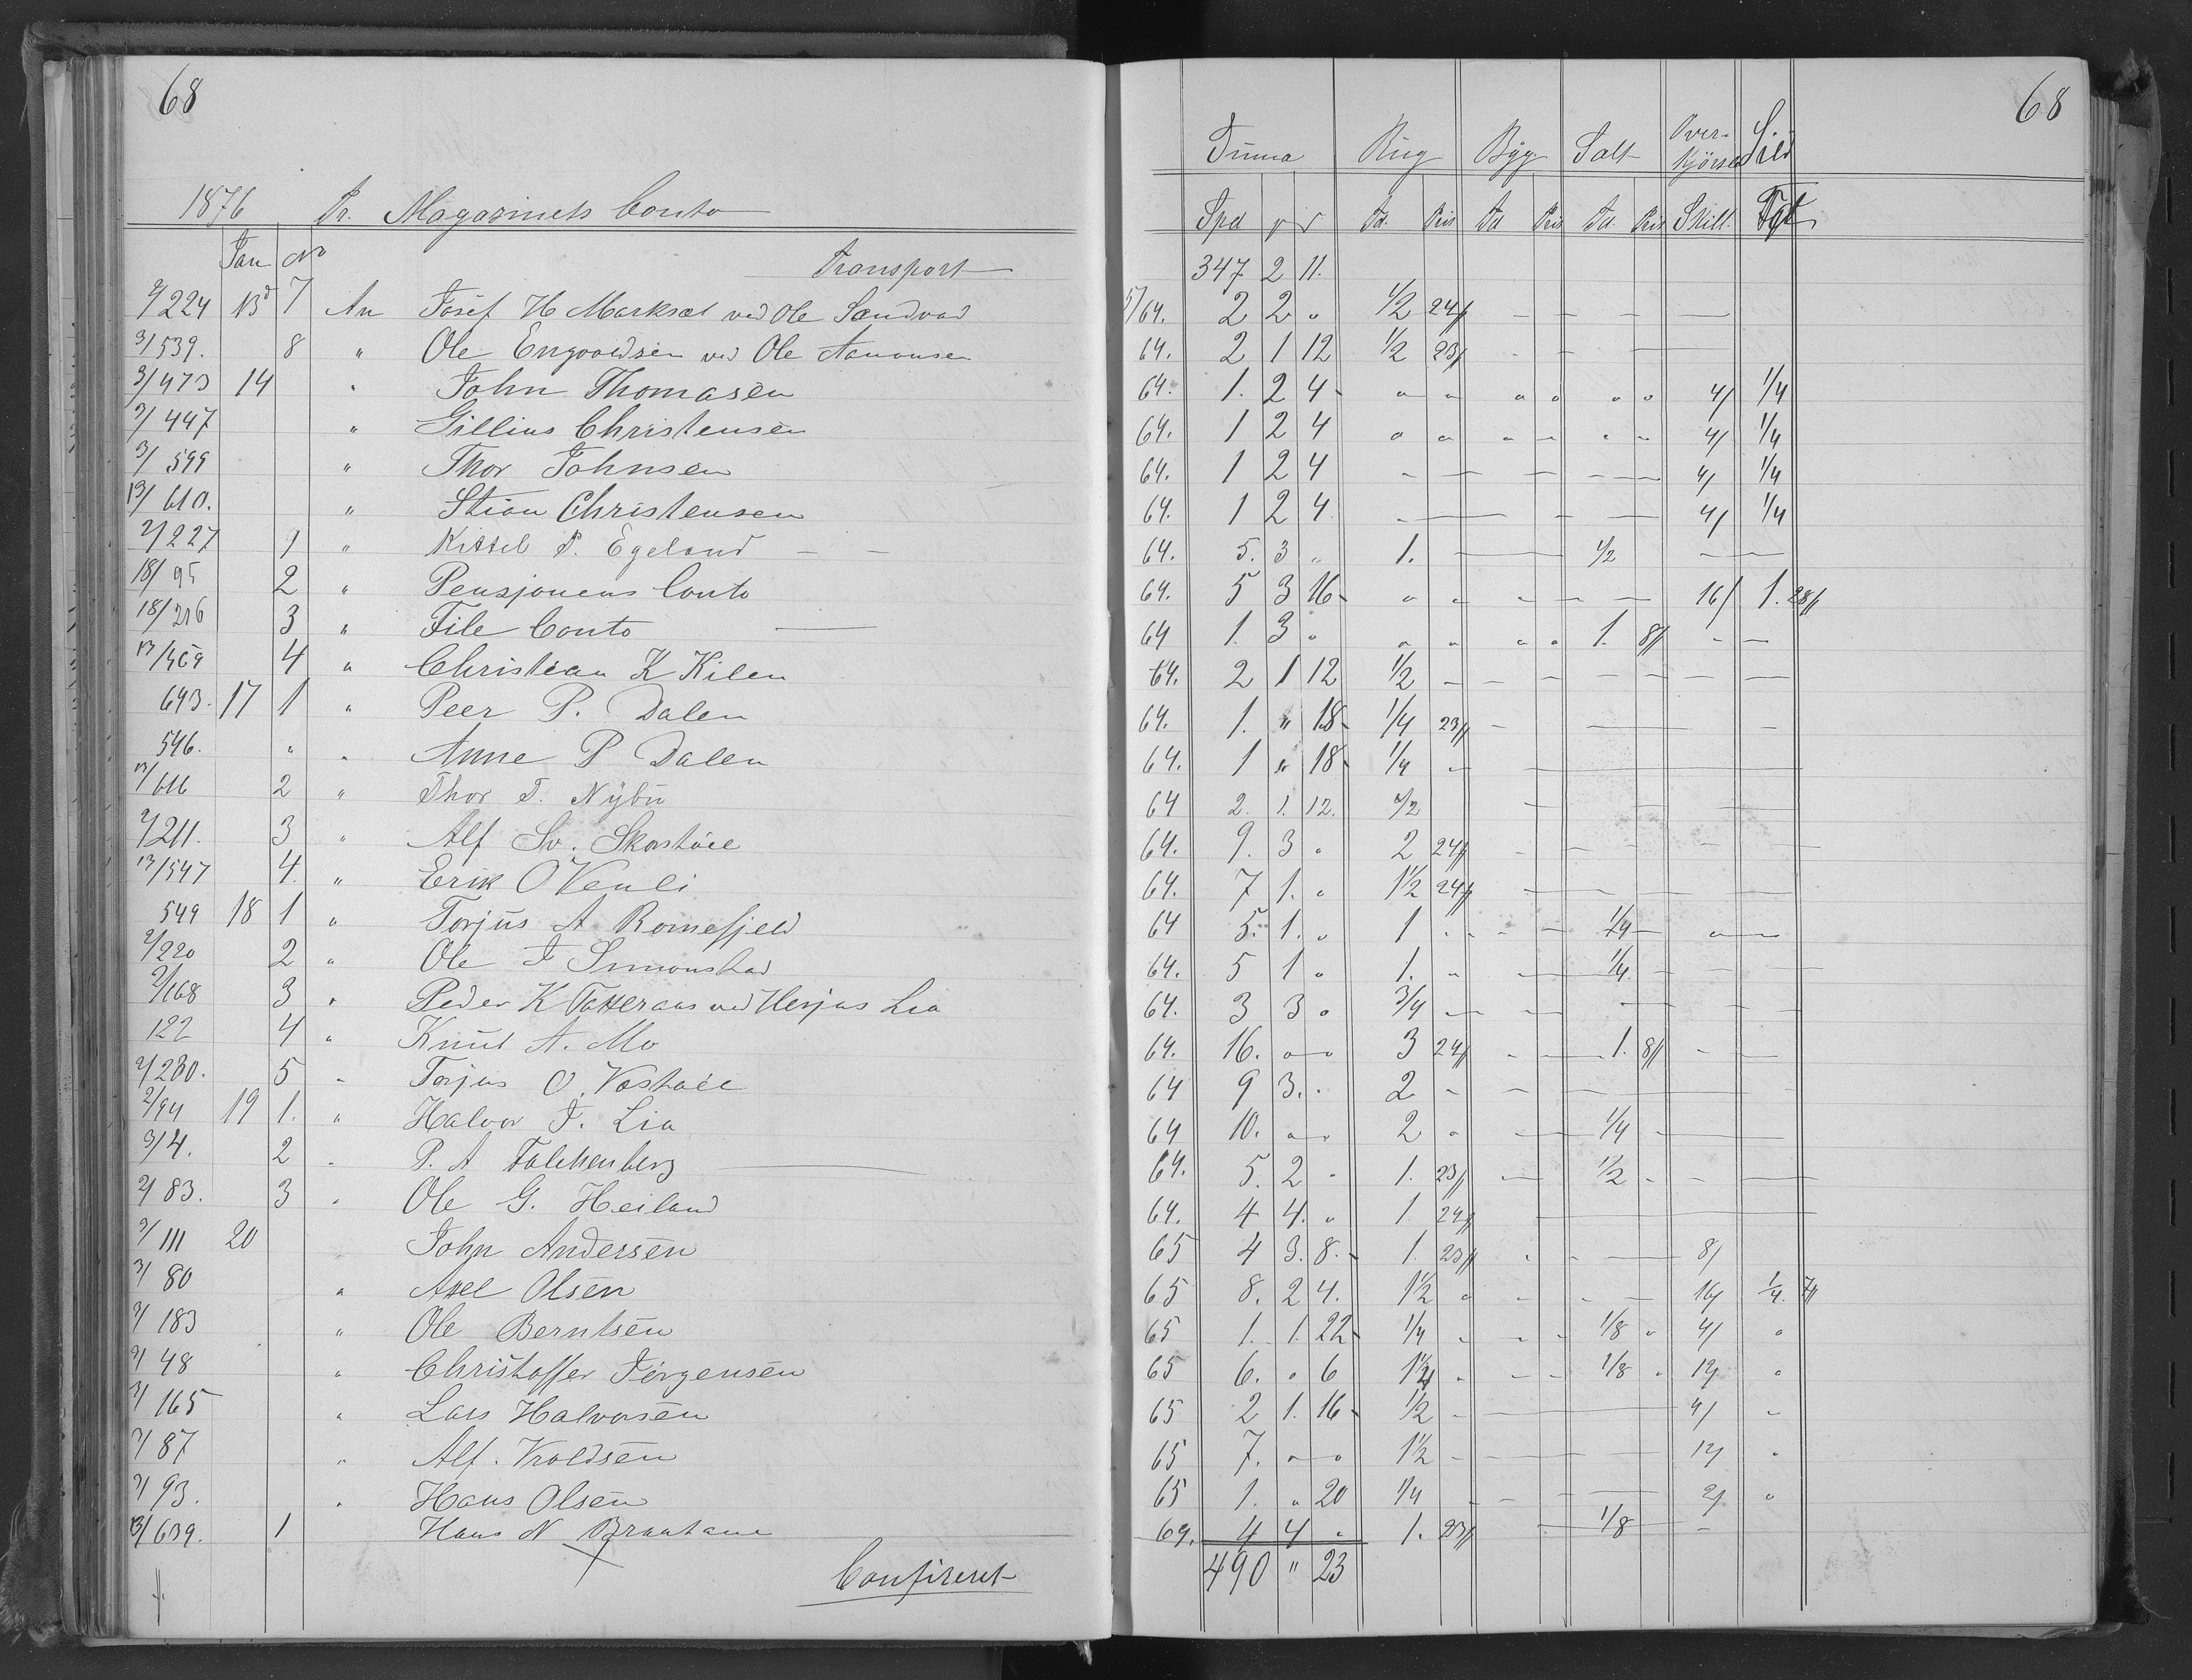 68
1876 Pr. Magazinets Conto
Jan No
Transport
2/224 13d 7 An Josef H Marksæt ved Ole Sandvad
3/539. 8 " Ole Engvoldsen ved Ole Aanonsen
3/473 14 " John Thomasen
2/447 " Gillius Christensen
3/599 " Thor Johnsen
13/610. " Stian Christensen
2/227 1 " Kittel P. Egeland
18/95 2 " Pensjonens Conto
18/216 3 " File Conto
13/469 4 " Christian K Kilen
643. 17 1 " Peer P. Dalen
546. " " Anne P Dalen
13/616 2 " Thor T. Nÿbu
2/211. 3 " Alf Sv. Skastöil
13/547 4. " Erik O Venli
549 18 1 " Torjus A Romefjeld
2/220 2 " Ole T Simonstad
2/168 3 " Peder K Tatteraas ved Herjus Lia
122 4 " Knut A. Mo
2/230. 5 " Torjus O. Vastöil
2/94 19 1. " Halvor T. Lia
3/4. 2 " P. A Falchenberg
2/83. 3 " Ole G. Heiland
2/111 20 John Andersen
3/80 " Axel Olsen
2/183 " Ole Berntsen
2/48 " Christoffer Jörgensen
2/165 " Lars Halvorsen
2/87 " Alf. Kroldsen
2/93. " Hans Olsen
13/639. 1 Hans N Braatane
Confireret
68
Summa Rug Byg Salt Over-kjörsel Sild
Spd Td. Pris Td Pris Td. Pris Skill. Fjt
347 2 11.
5/64. 2 2 " 1/2 24/
64. 2 1 12 1/2 23/
64. 1. 2 4 " " " " " " 4/ 1/4
64. 1 2 4 " " " " " " 4/ 1/4
64. 1 2 4 4/ 1/4
64. 1 2 4 4/ 1/4
64. 5. 3 " 1. 1/2
64. 5 3 16 " " 16/ 1. 28/
64 1. 3 " " " " " 1. 8/
64. 2 1 12 1/2
64. 1. " 18 1/4 23/
64. 1 " 18 1/4
64 2. 1. 12. 1/2
64. 9. 3 " 2 24/
64. 7 1. " 1 1/2 24/
64 5. 1. " 1 1/4
64. 5 1 " 1. " 1/4
64. 3 3 " 3/4
64. 16. " " 3 24/ 1. 8/
64 9 3. " 2
64 10. " " 2 " 1/4
64. 5. 2 " 1. 23/ 1/2
64. 4 4. " 1 24/
65 4 3. 8. 1. 23/ 8/
65 8. 2 4. 1 1/2 " 16/ 1/4. 7/
65 1. 1. 22 1/4 1/8 " 4/ "
65 6. " 6 1 1/4 1/8 " 12/ "
65 2 1. 16 1/2 4/ "
65 7. " " 1 1/2 12/ "
65 1. " 20 1/4 2/ "
64. 4 4 " 1. 23/ 1/8
490 " 23